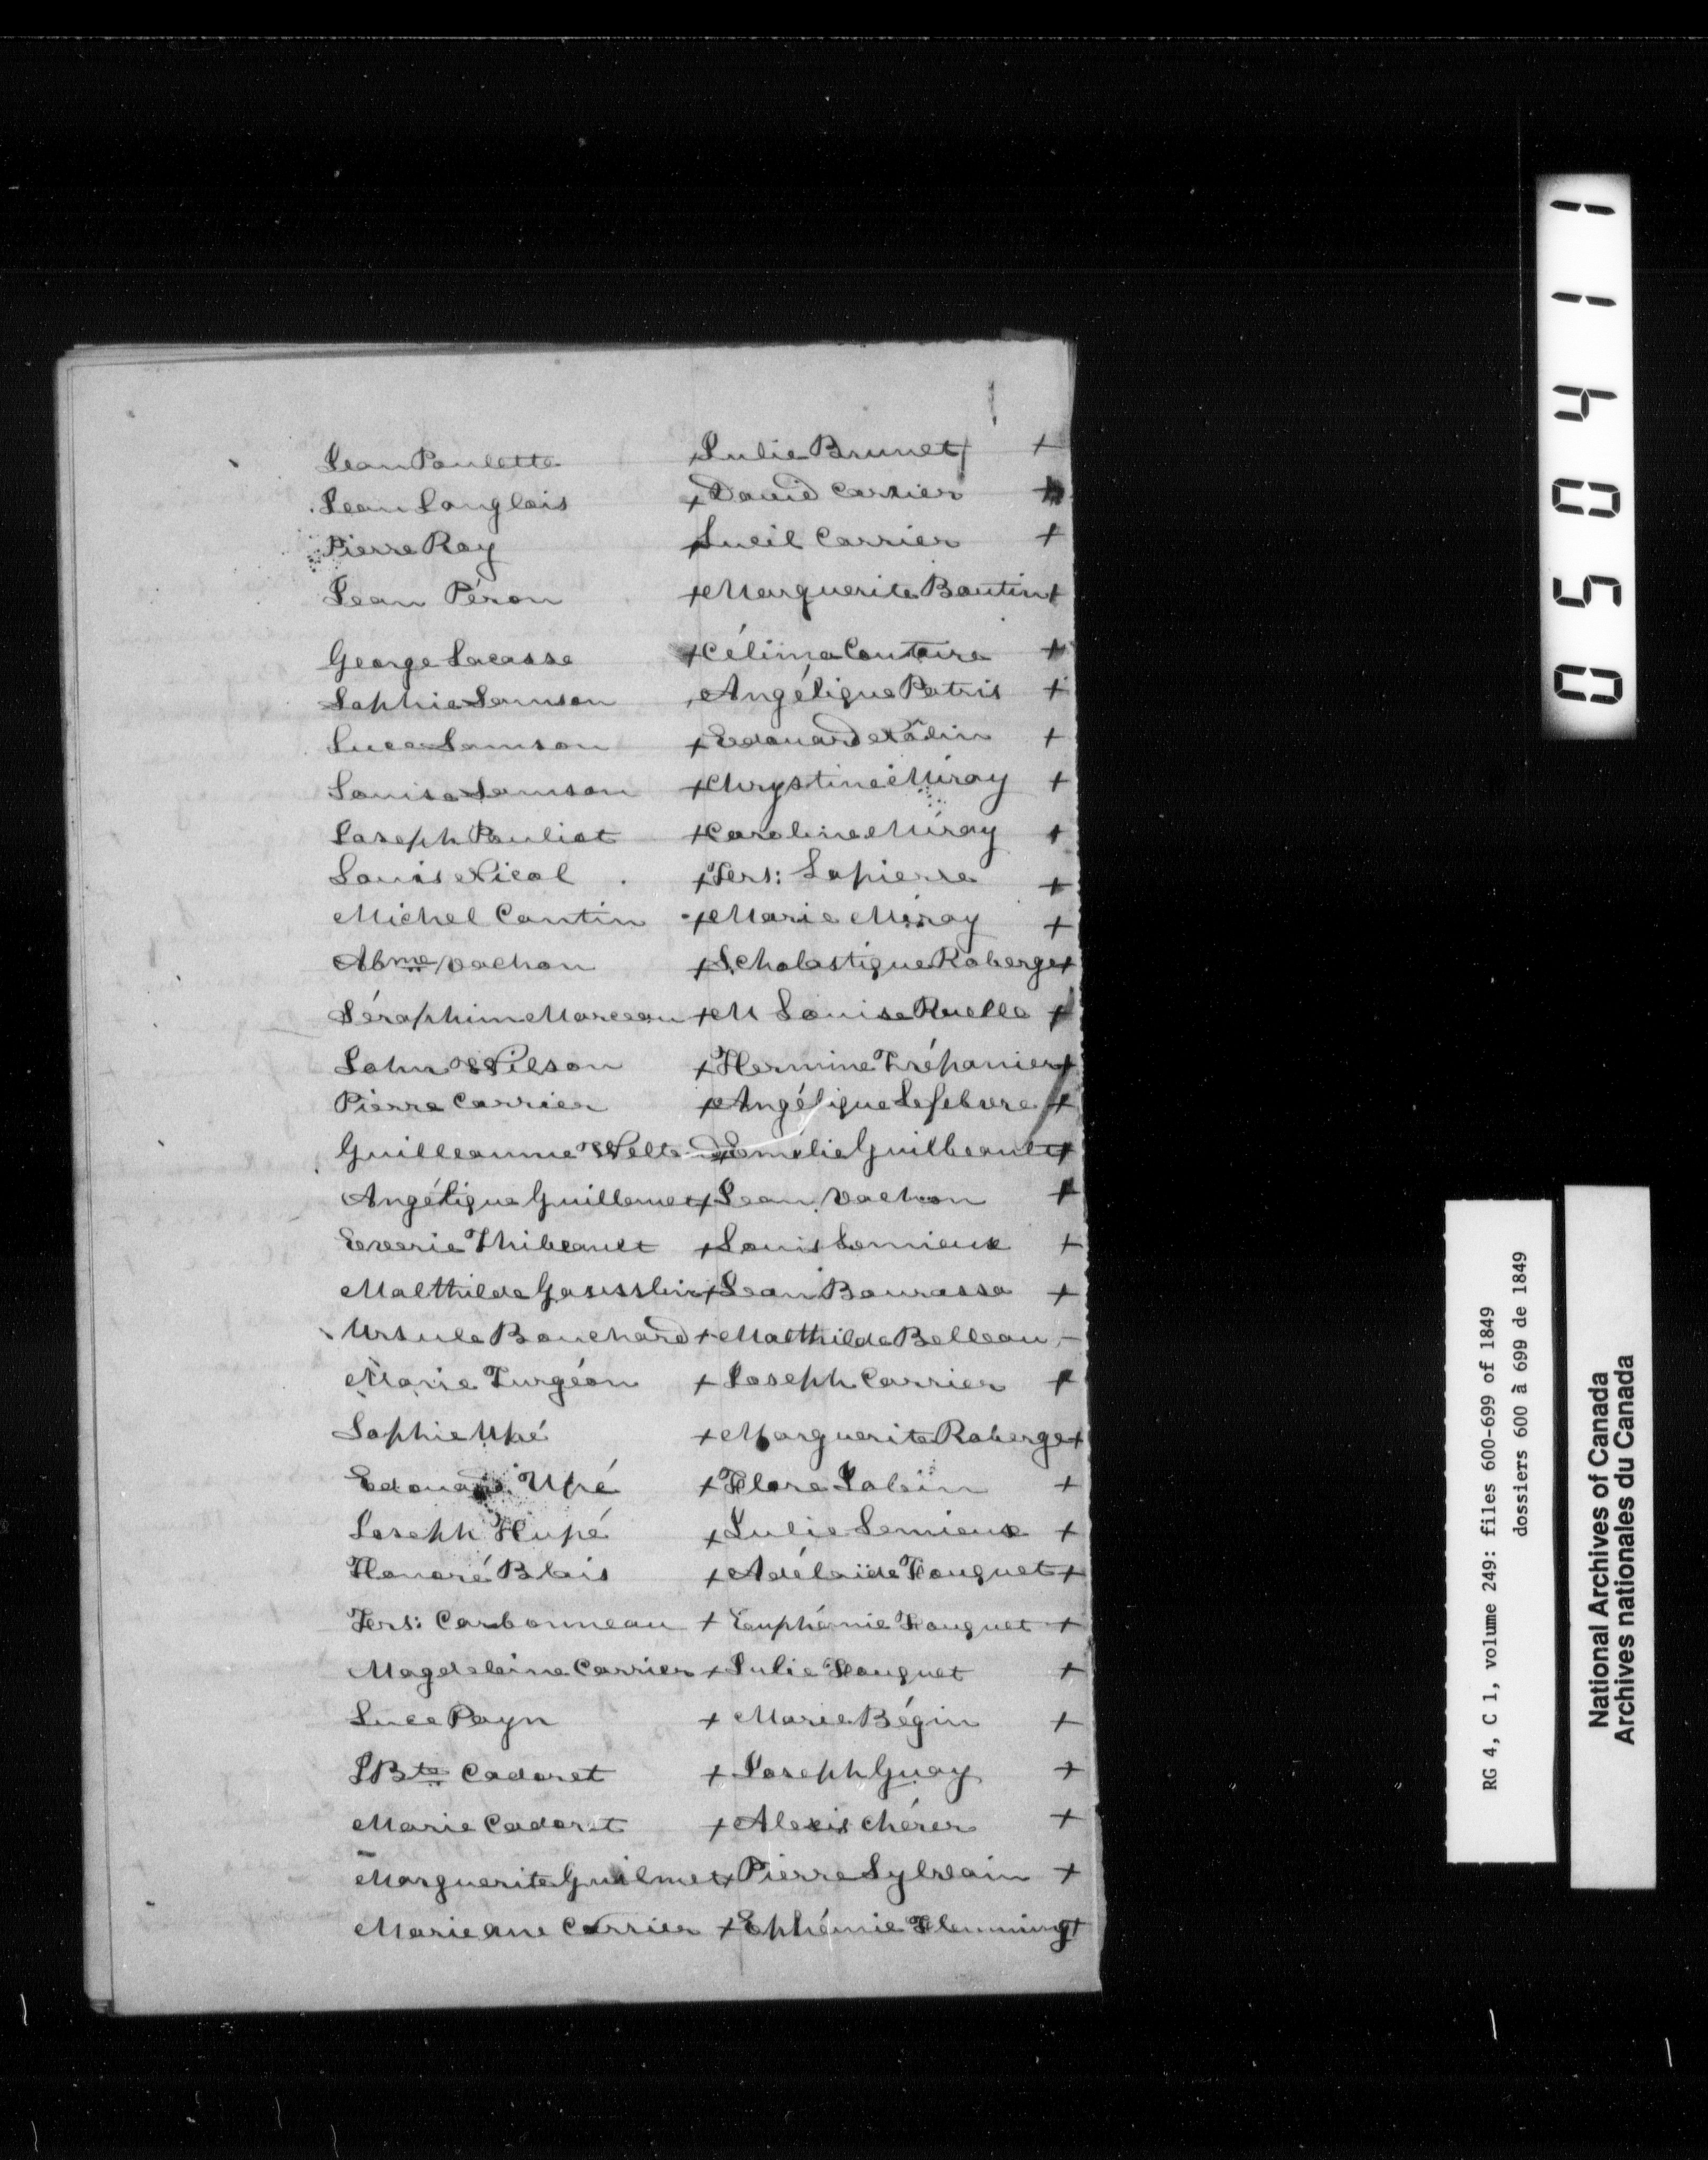 Jean Paulette + Julie Brunet +
Jean Langlois + David Carrier +
Pierre Roy + Luèil Carrier +
Jean Péron + Marguerite Boutin +
George Lacasse + Célima Couture +
Sophie Samson + Angélique Patris +
Luce Samson + Edouard Nolin +
Louise Samson + Chrystine Miray +
Joseph Pouliot + Caroline Miray +
Louis Nicol + Frs: Lapierre +
Michel Cantin + Marie Miray +
Abme Vachon + Scholastique Roberge +
Séraphime Marceau + M Louise Ruelle +
John Wilson + Hermine Trépanier +
Pierre Carrier + Angélique Lefebvre +
Guilleaume + Emélie Guilbeault +
Angélique Guillemet + Jean Vachon +
Exerie Thibeault + Louis Lemieux +
Malthilde Gausslin + Jean Bourassa +
Ursule Bouchard + Malthilde Belleau +
Marie Turgéon + Joseph Carrier +
Sophie Upé + Marguerite Roberge +
Edouard Upé + Flore Jobin +
Joseph Hupé + Julie Lemieux +
Honoré Blais + Adélaïde Fouquet +
Frs: Carbonneau + Euphémie Fouquet +
Magdeleine Carrier + Julie Fouquet +
Luce Payn + Marie Bégin +
JBte Cadoret + Joseph Guay +
Marie Cadoret + Alexis Chérer +
Marguerite Guilmet + Pierre Sylvain +
Marie Ane Carrier + Ephémie Flemming +
050411
RG 4, C 1, volume 249: files 600-699 of 1849
dossiers 600 à 699 de 1849
National Archives of Canada
Archives nationales du Canada